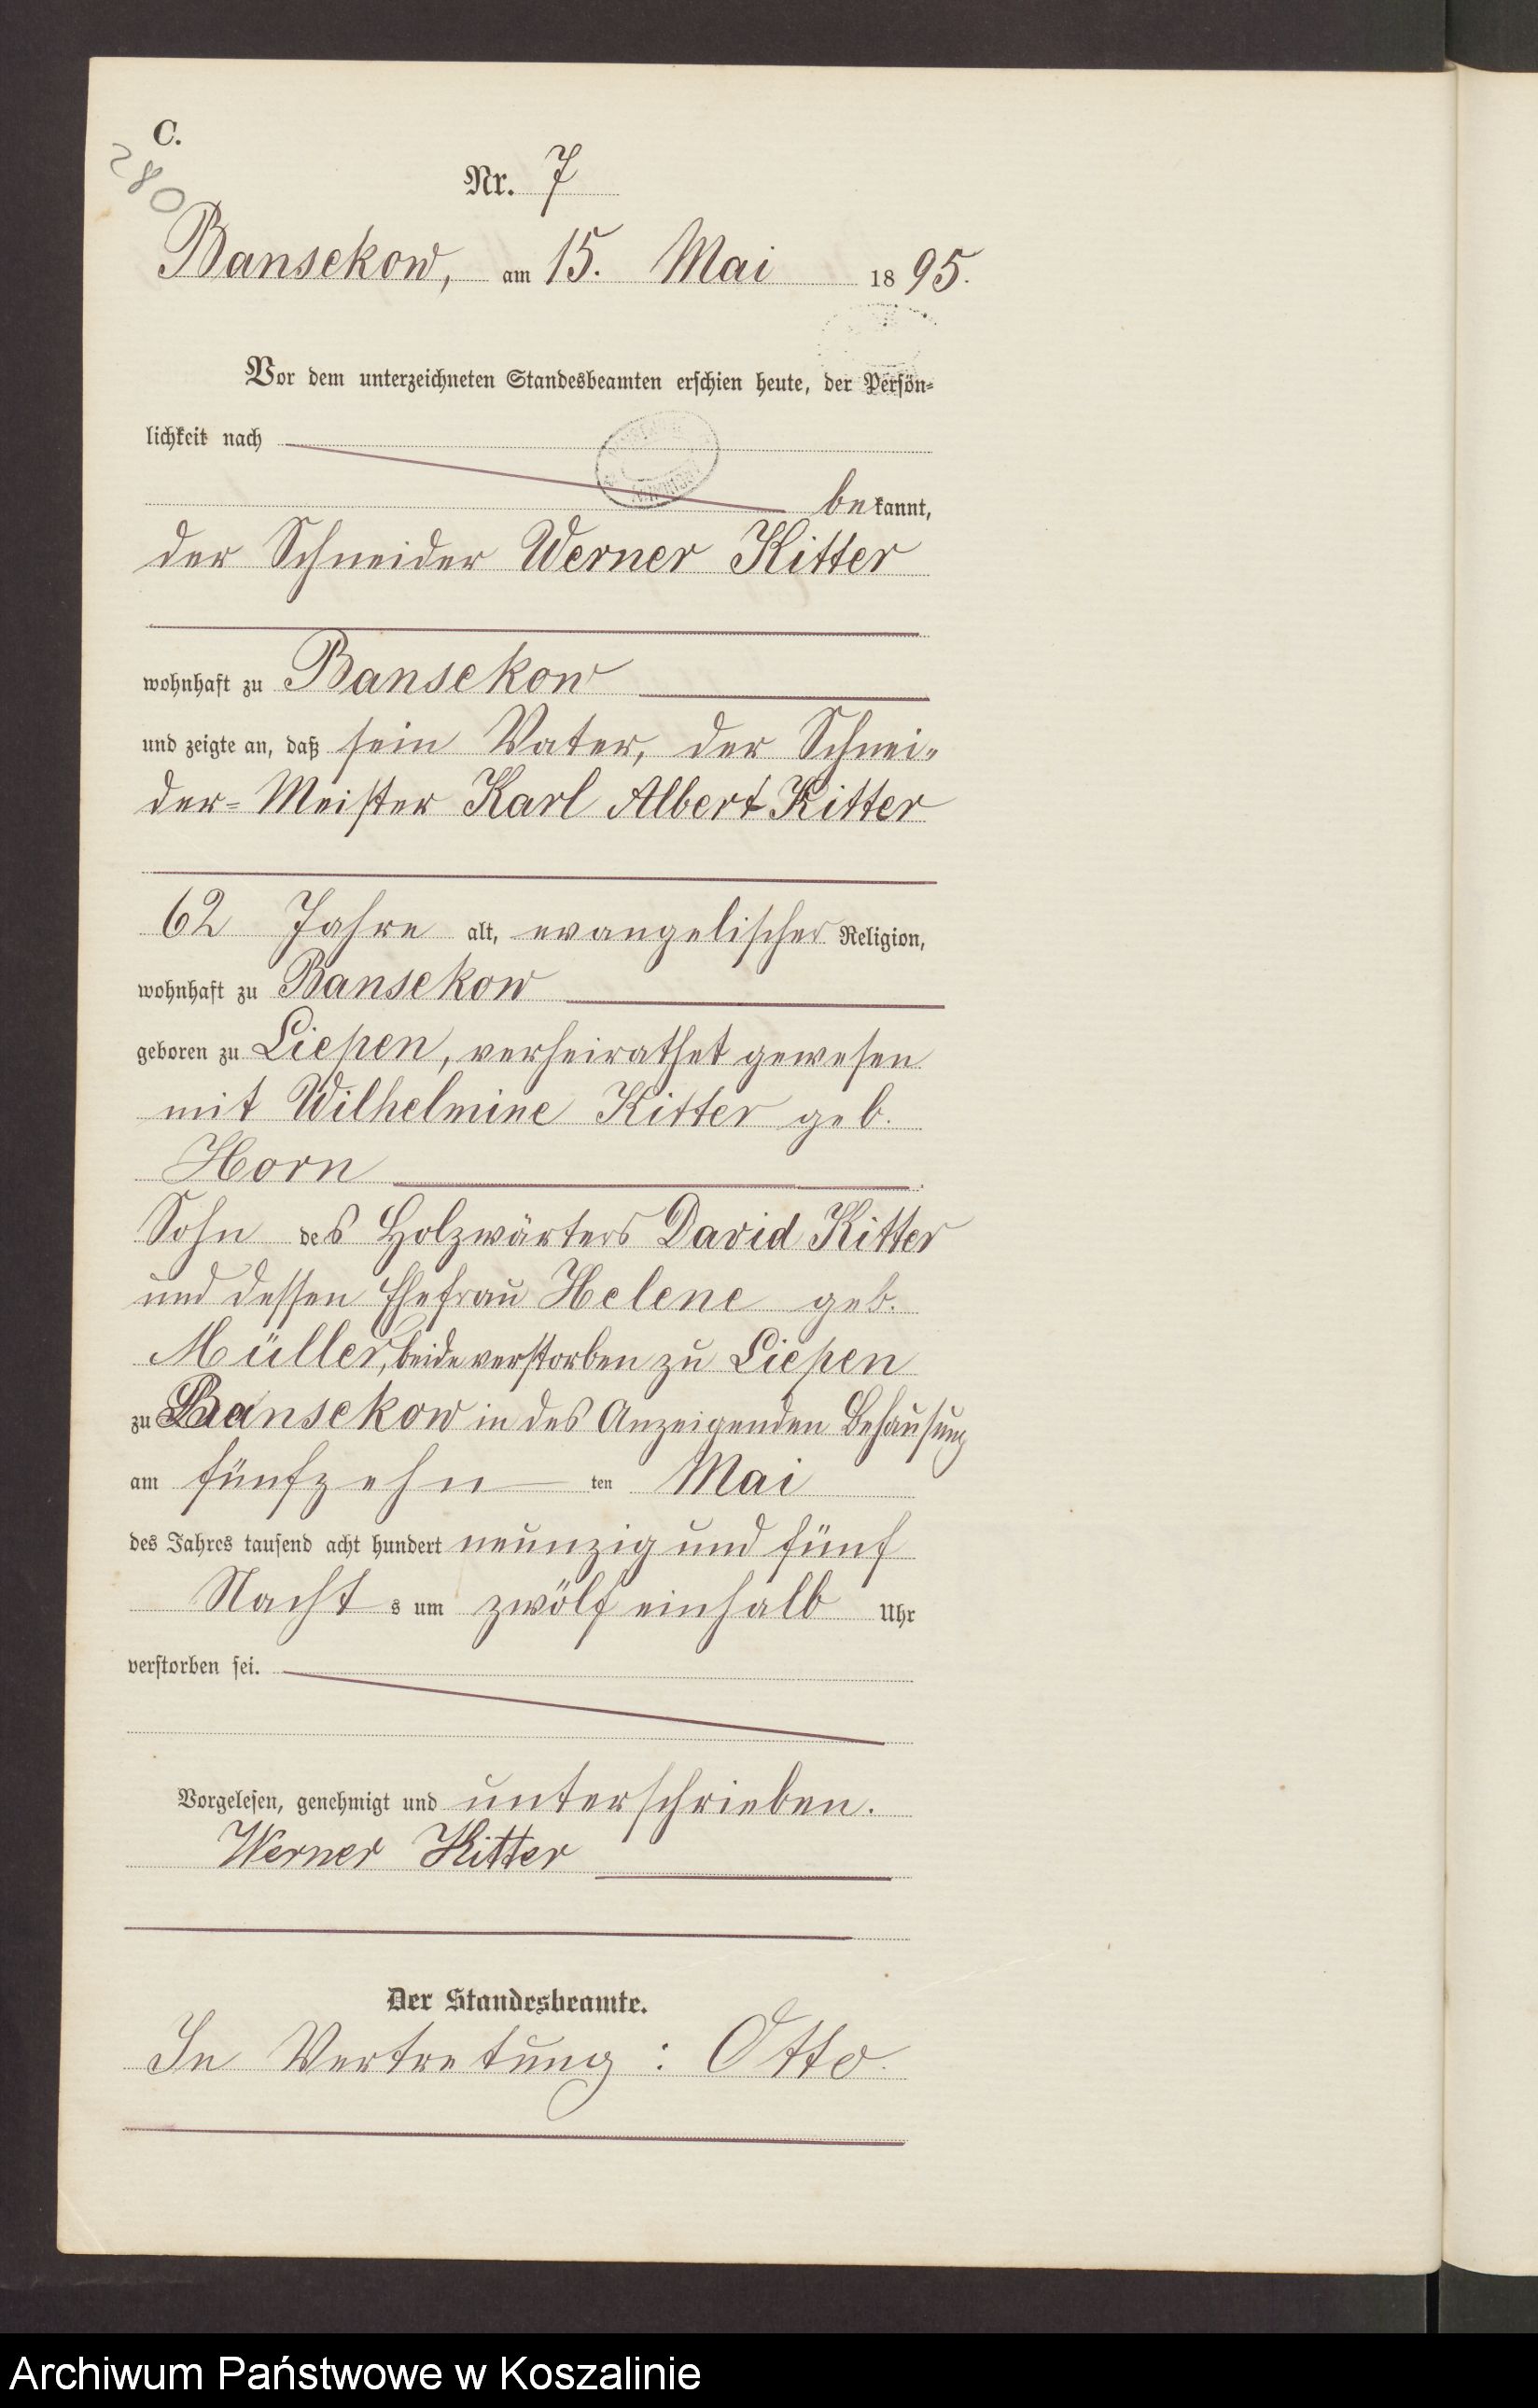 C.
280
Nr. 7
Bansekow, am 15. Mai 1895.
Vor dem unterzeichneten Standesbeamten erschien heute, der Persön-
lichkeit nach
bekannt,
der Schneider Werner Kitter
wohnhaft zu Bansekow
und zeigte an, daß sein Vater, der Schnei-
der-Meister Karl Albert Kitter
62 Jahre alt, evangelischer Religion,
wohnhaft zu Bansekow
geboren zu Liepen, verheirathet gewesen
mit Wilhelmine Kitter geb.
Horn
Sohn des Holzwärters David Kitter
und dessen Ehefrau Helene geb.
Müller, beide verstorben zu Liepen
zu Bansekow in des Anzeigenden Behausung
am fünfzehn ten Mai
des Jahres tausend acht hundert neunzig und fünf
Nachts um zwölf einhalb Uhr
verstorben sei.
Vorgelesen, genehmigt und unterschrieben.
Werner Kitter
Der Standesbeamte.
In Vertretung: Otto.
Archiwum Państwowe w Koszalinie